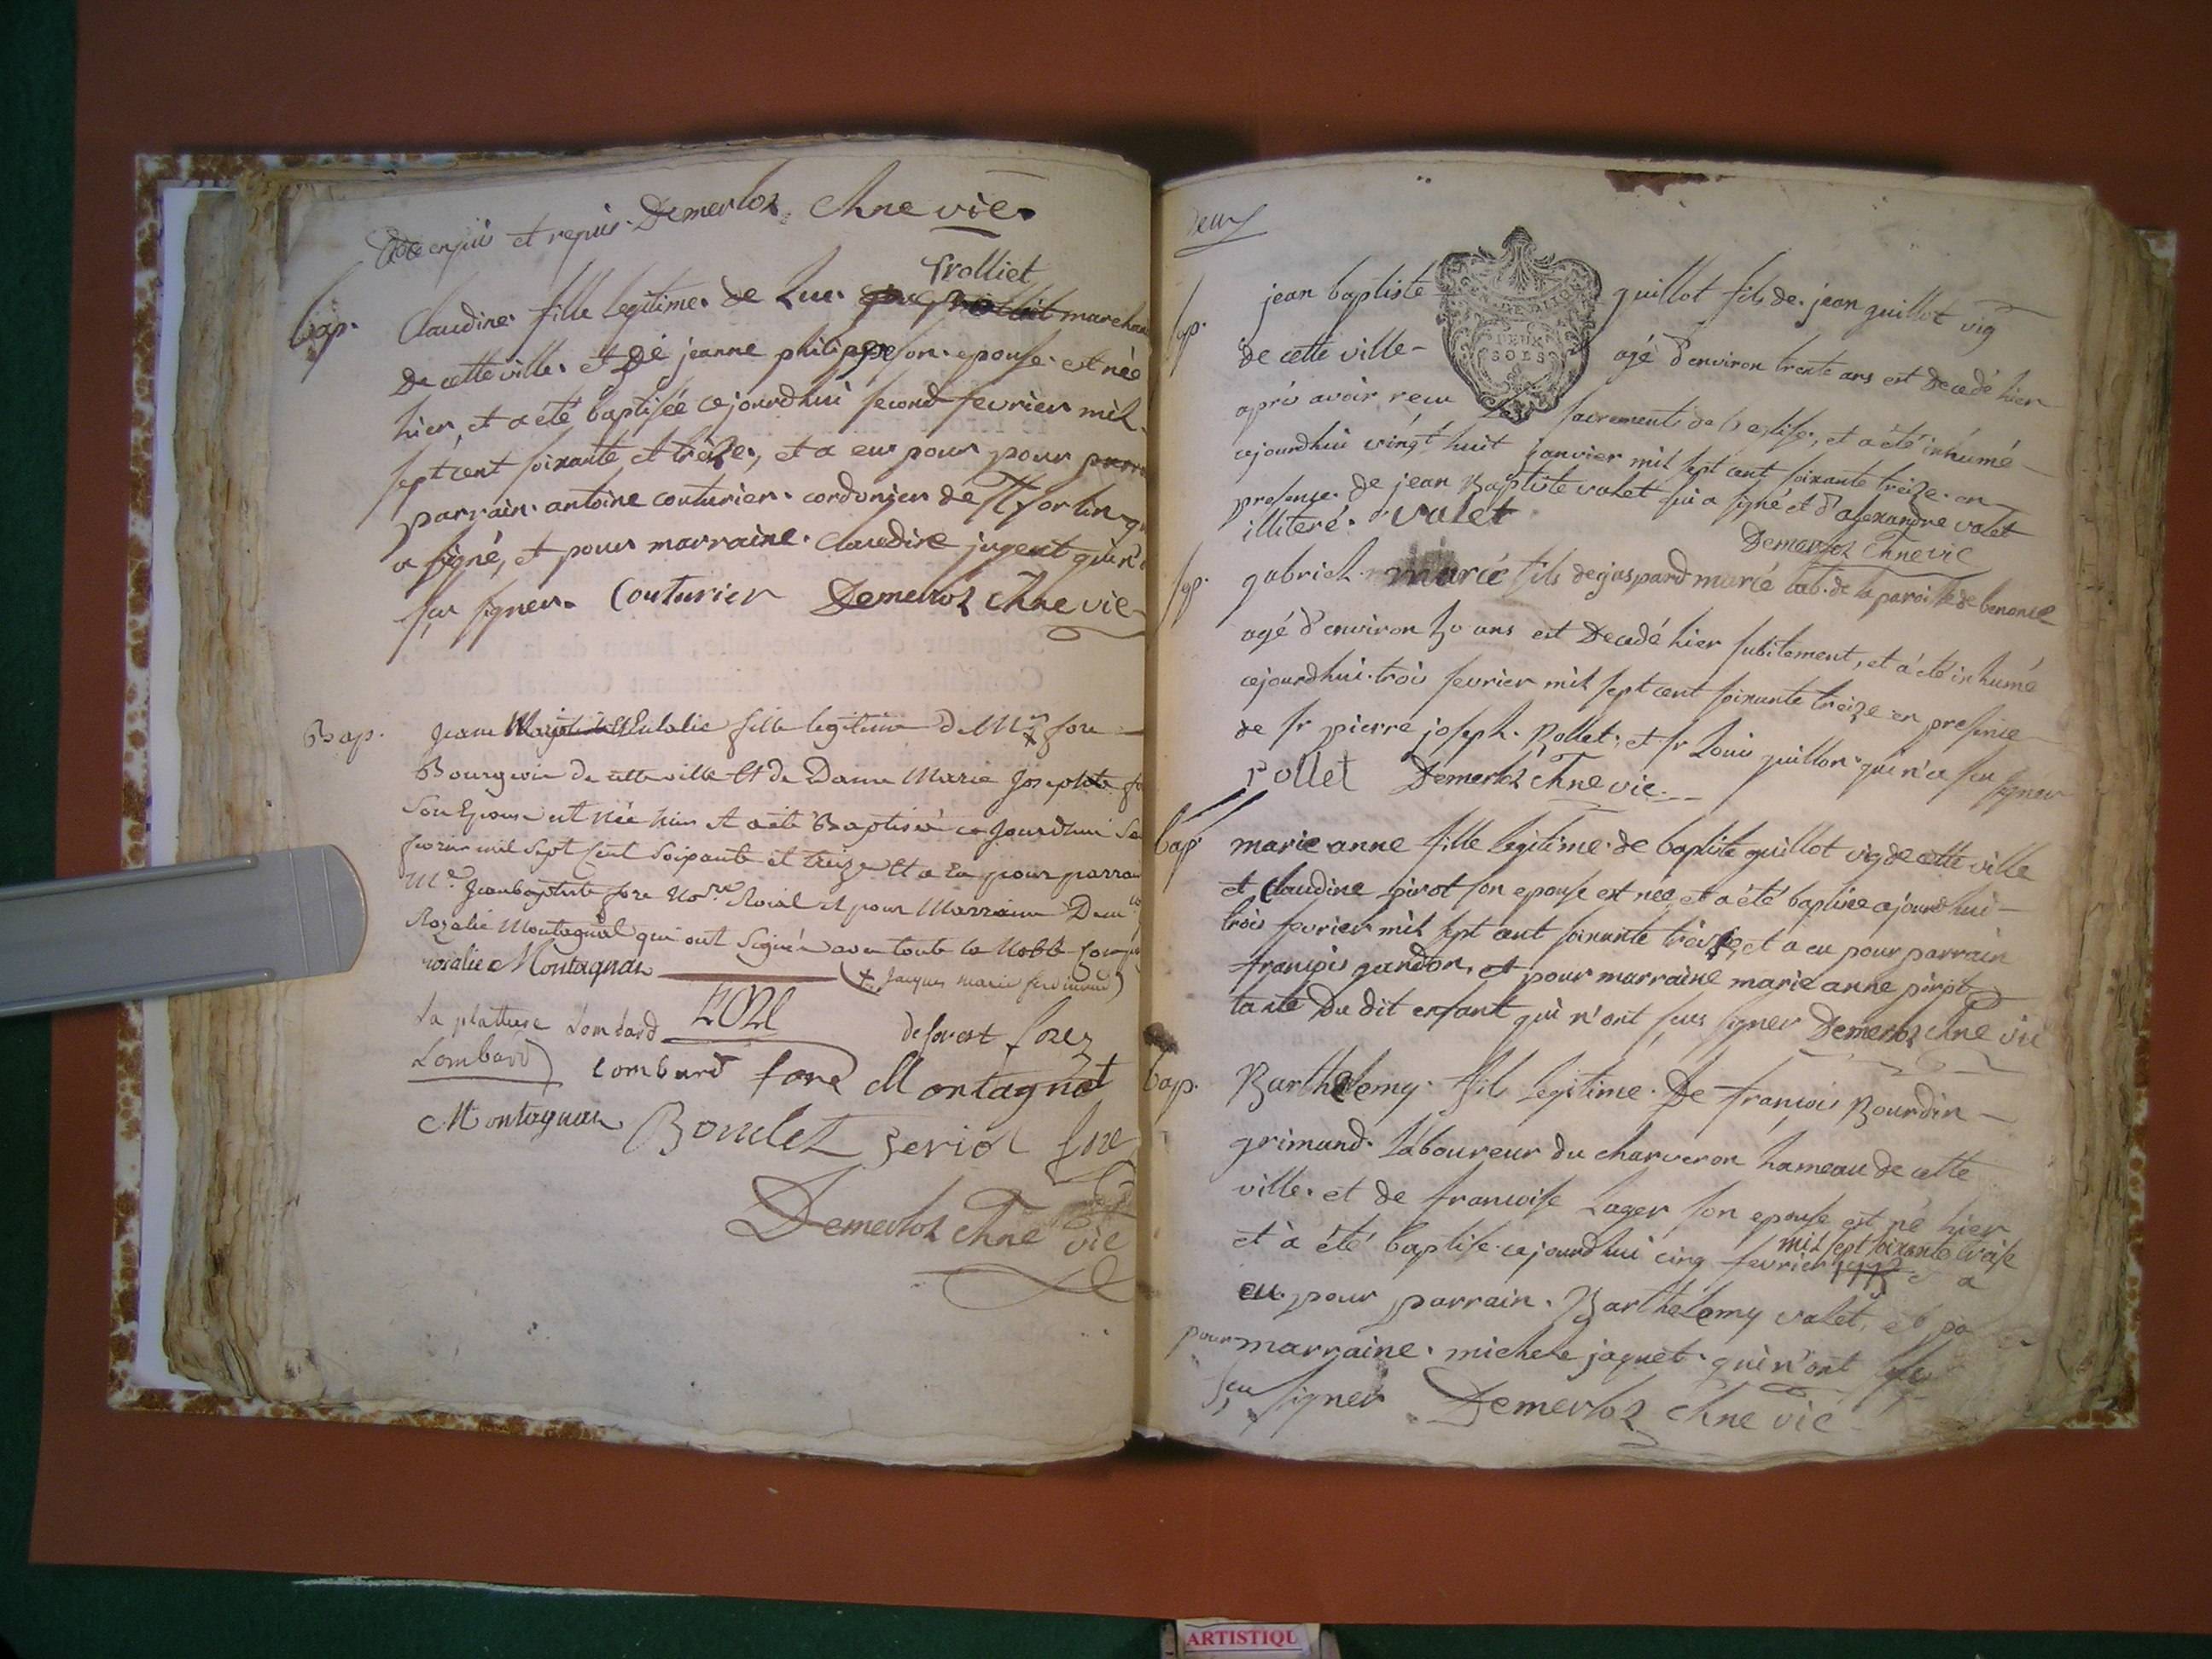 et repris Demerloz Chne vic.
bap. Claudine fille legitime de Luc Trolliet marchand
de cette ville et de jeanne philippe son epouse est née
hier, et a été baptisée cejourdhui second fevrier mil
sept cent soixante et treize, et a eu pour pour
parrain antoine couturier cordonier de
a signé, et pour marraine Claudine jugent qui n'a
sçu signer. Couturier Demerloz Chne vic
Bap. Jeane Eulalie fille legitime de Mr fore
Bourgeois de cette ville Et de Dame Marie Josephte
Son Epouse est née hier Et a été Baptisée ce Jourdhui
fevrier mil Sept Cent Soixante et treize Et a Eu pour parrain
Me Jeanbaptiste fore Nore Roial et pour Marraine
Rozalie Montagnat qui ont Signé avec toute la Noble
rosalie Montagnat
(+ Jacques marie
La platiere Lombard deforest forez
Lombard Lombard fore Montagnat
Montagnat Boudet fore
Demerloz Chne vic
deux
DEUX
SOLS
sep. jean baptiste guillot fils de jean guillot vig
de cette ville agé d'environ trente ans est decedé hier
aprés avoir reçu les sacrements de l'eglise, et a été inhumé
cejourdhui vingt huit janvier mil sept cent soixante treize en
presence de jean Baptiste valet qui a signé et d'alexandre valet
illiteré. valet
Demerloz Chne vic
sep. gabriel marié fils de gaspard marié lab. de la paroisse de benonce
agé d'environ 30 ans est decedé hier subitement, et a été inhumé
cejourdhui trois fevrier mil sept cent soixante treize en presence
de sr pierre joseph Rollet, et sr Louis guillon qui n'a sçu signer
rollet Demerloz Chne vic.
bap. marie anne fille legitime de baptiste guillot vig de cette ville
et Claudine pirot son epouse est née, et a été baptisée cejourdhui
trois fevrier mil sept cent soixante treize, et a eu pour parrain
françois gandon, et pour marraine marie anne pirot
tante du dit enfant qui n'ont sçus signer Demerloz Chne vic
bap. Barthelemy fils legitime de françois Bourdin
grimund laboureur du charveron hameau de cette
ville et de francoise Lager son epouse est né hier
mil sept soixante treise
et à été baptisé cejourdhui cinq fevrier 1773 et a
eu pour parrain Barthelemy valet, et po
pour marraine michele jaquet qui n'ont
sçu signer Demerloz Chne vic
ARTISTIQU